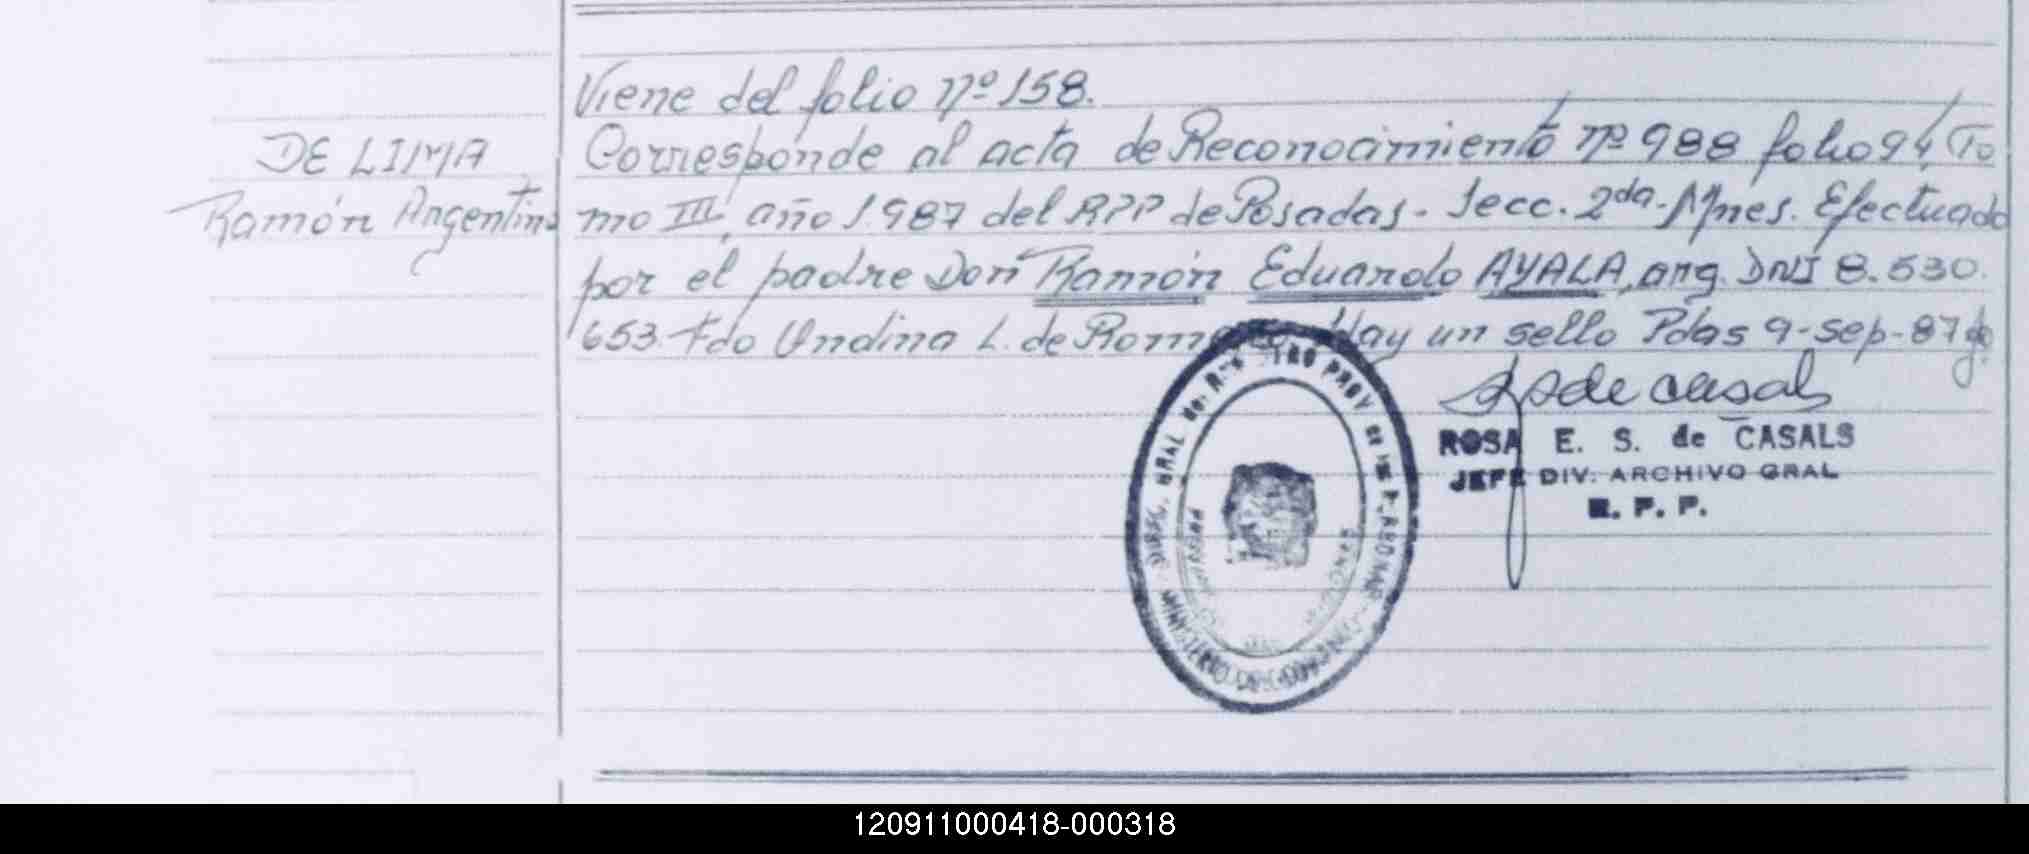 Viene del folio nº 158.
DE LIMA
Ramón Argentino
Corresponde al acta de Reconocimiento nº 988 folio 94, To
mo III, año 1.987 del RPP de Posadas - Secc. 2da. Mnes. Efectuado
por el padre Don Ramón Eduardo AYALA, arg. DNI 8.530.
653. Fdo Undina L. de Hay un sello Pdas 9-sep-87
ROSA E. S. de CASALS
JEFE DIV. ARCHIVO GRAL
R. P. P.
DIREC. GRAL PROV
MINISTERIO DE GOBIERNO
120911000418-000318